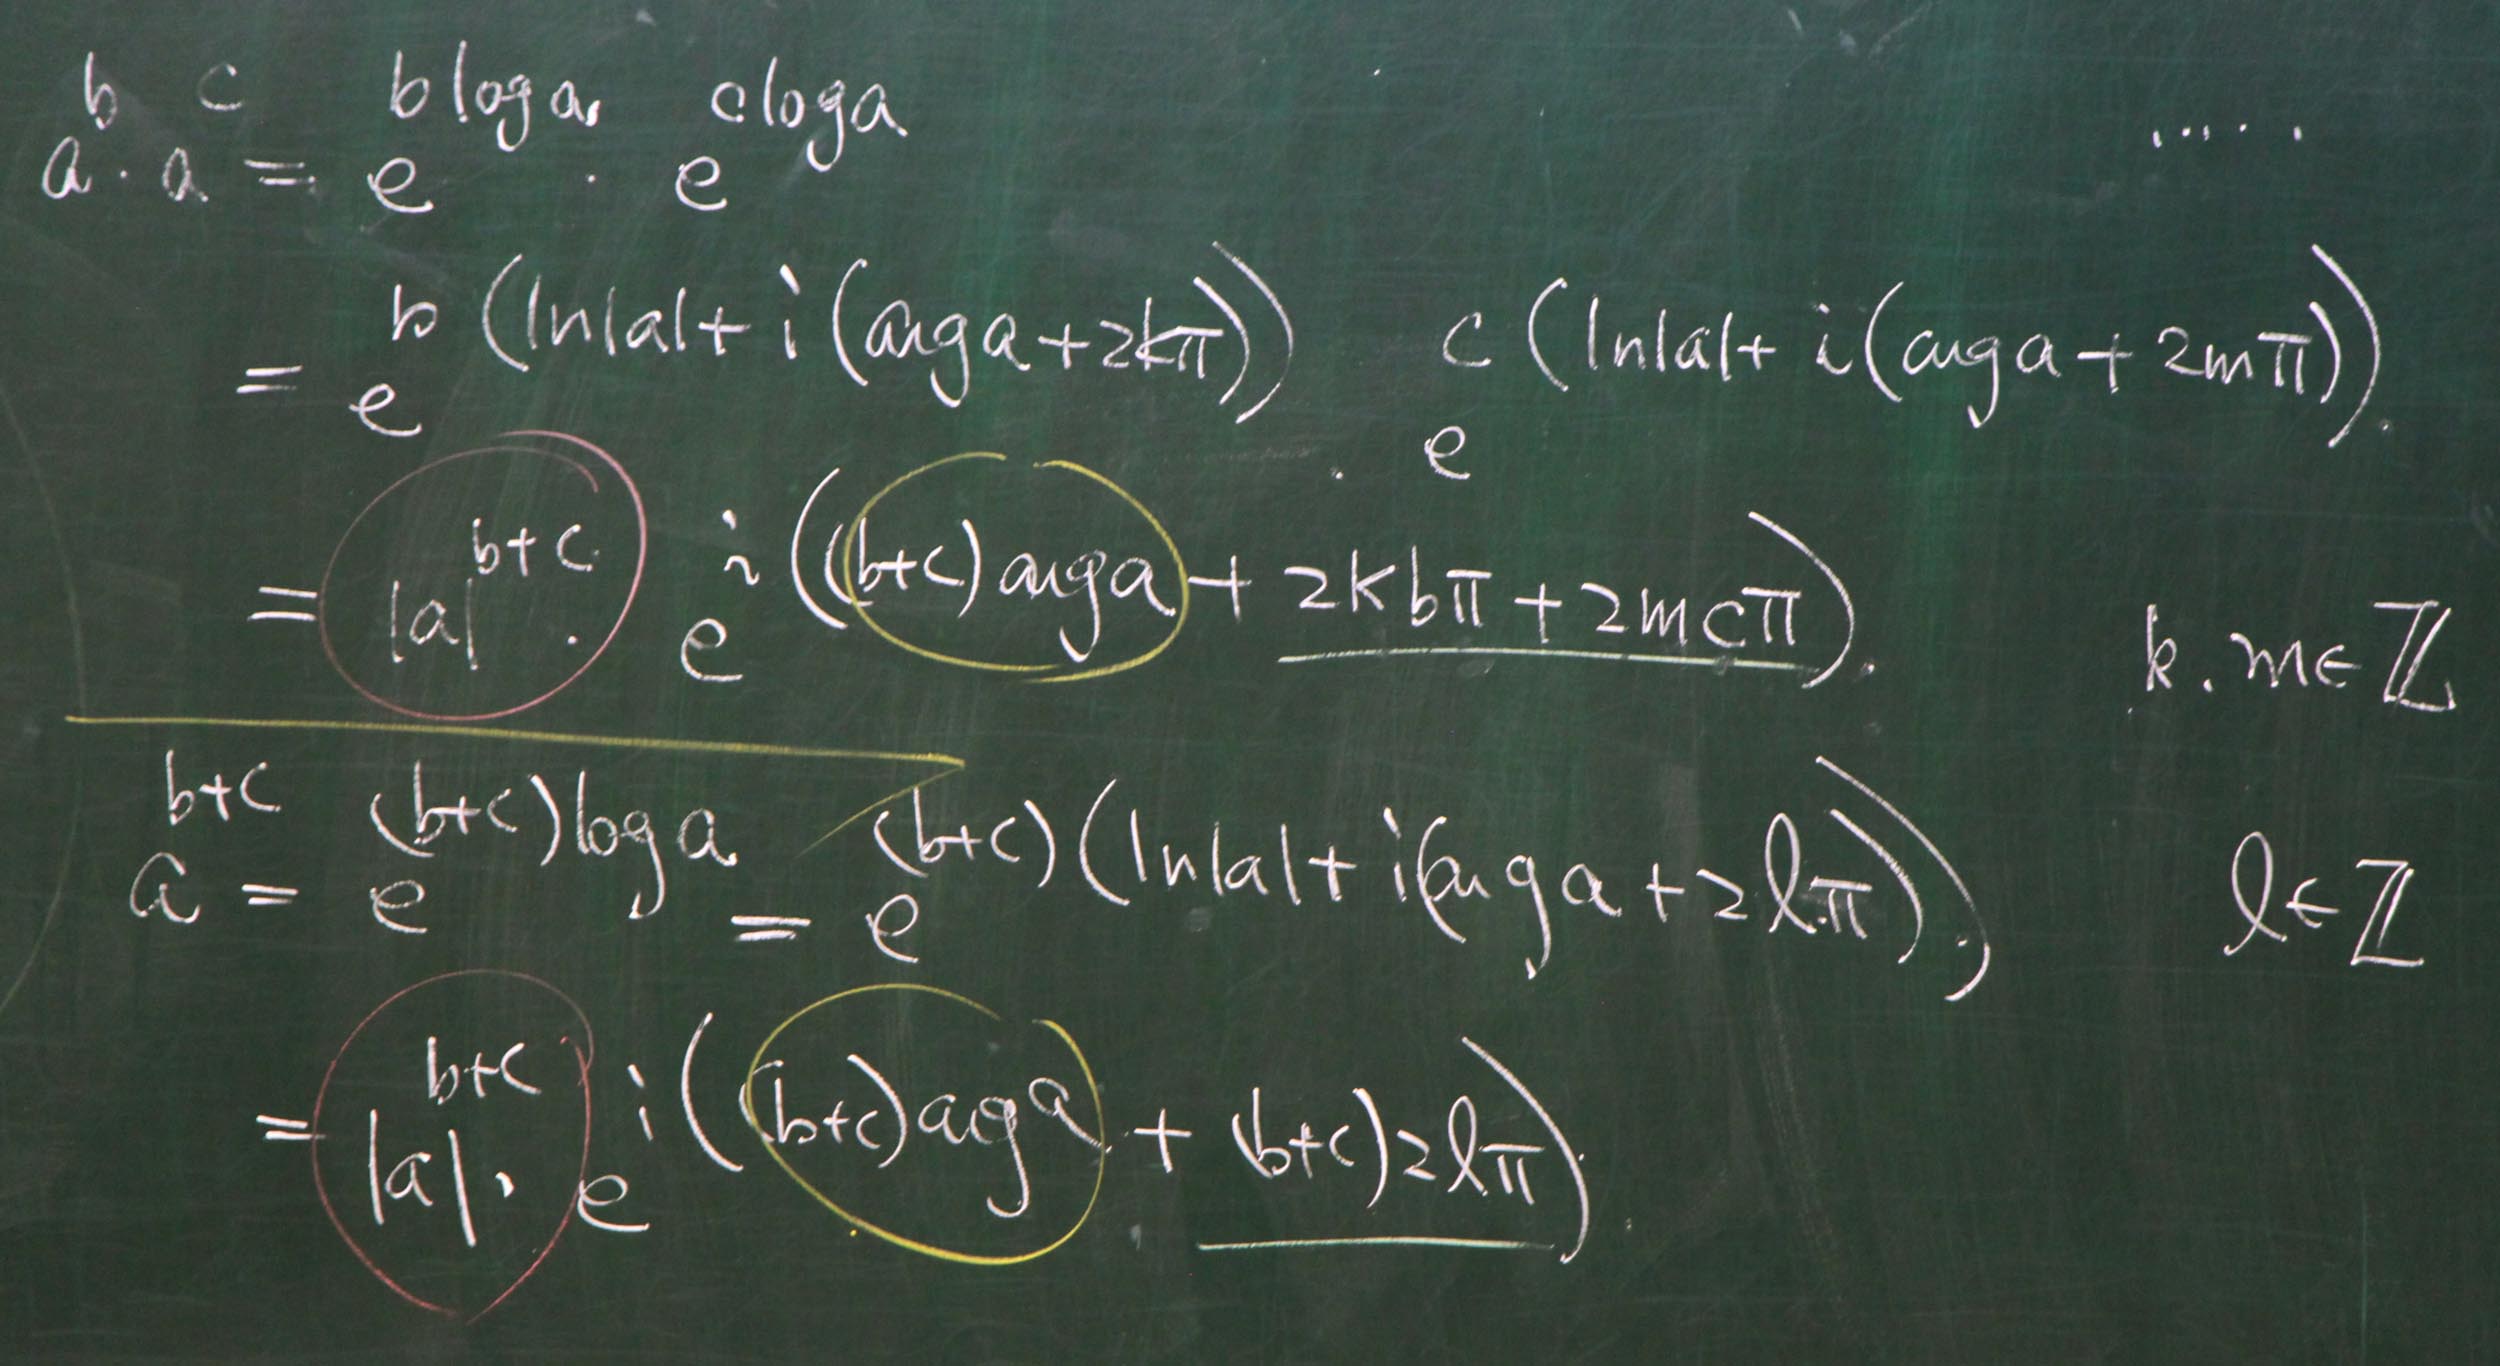 a^b · a^c = e^{b log a} · e^{c log a} .....
= e^{b (ln|a| + i (arg a + 2kπ))} · e^{c (ln|a| + i (arg a + 2mπ))}.
= |a|^{b+c} · e^{i ((b+c) arg a + 2kbπ + 2mcπ)}. k. m ∈ ℤ
a^{b+c} = e^{(b+c) log a} = e^{(b+c) (ln|a| + i(arg a + 2ℓπ))}. ℓ ∈ ℤ
= |a|^{b+c} · e^{i ((b+c) arg a + (b+c) 2ℓπ)}.